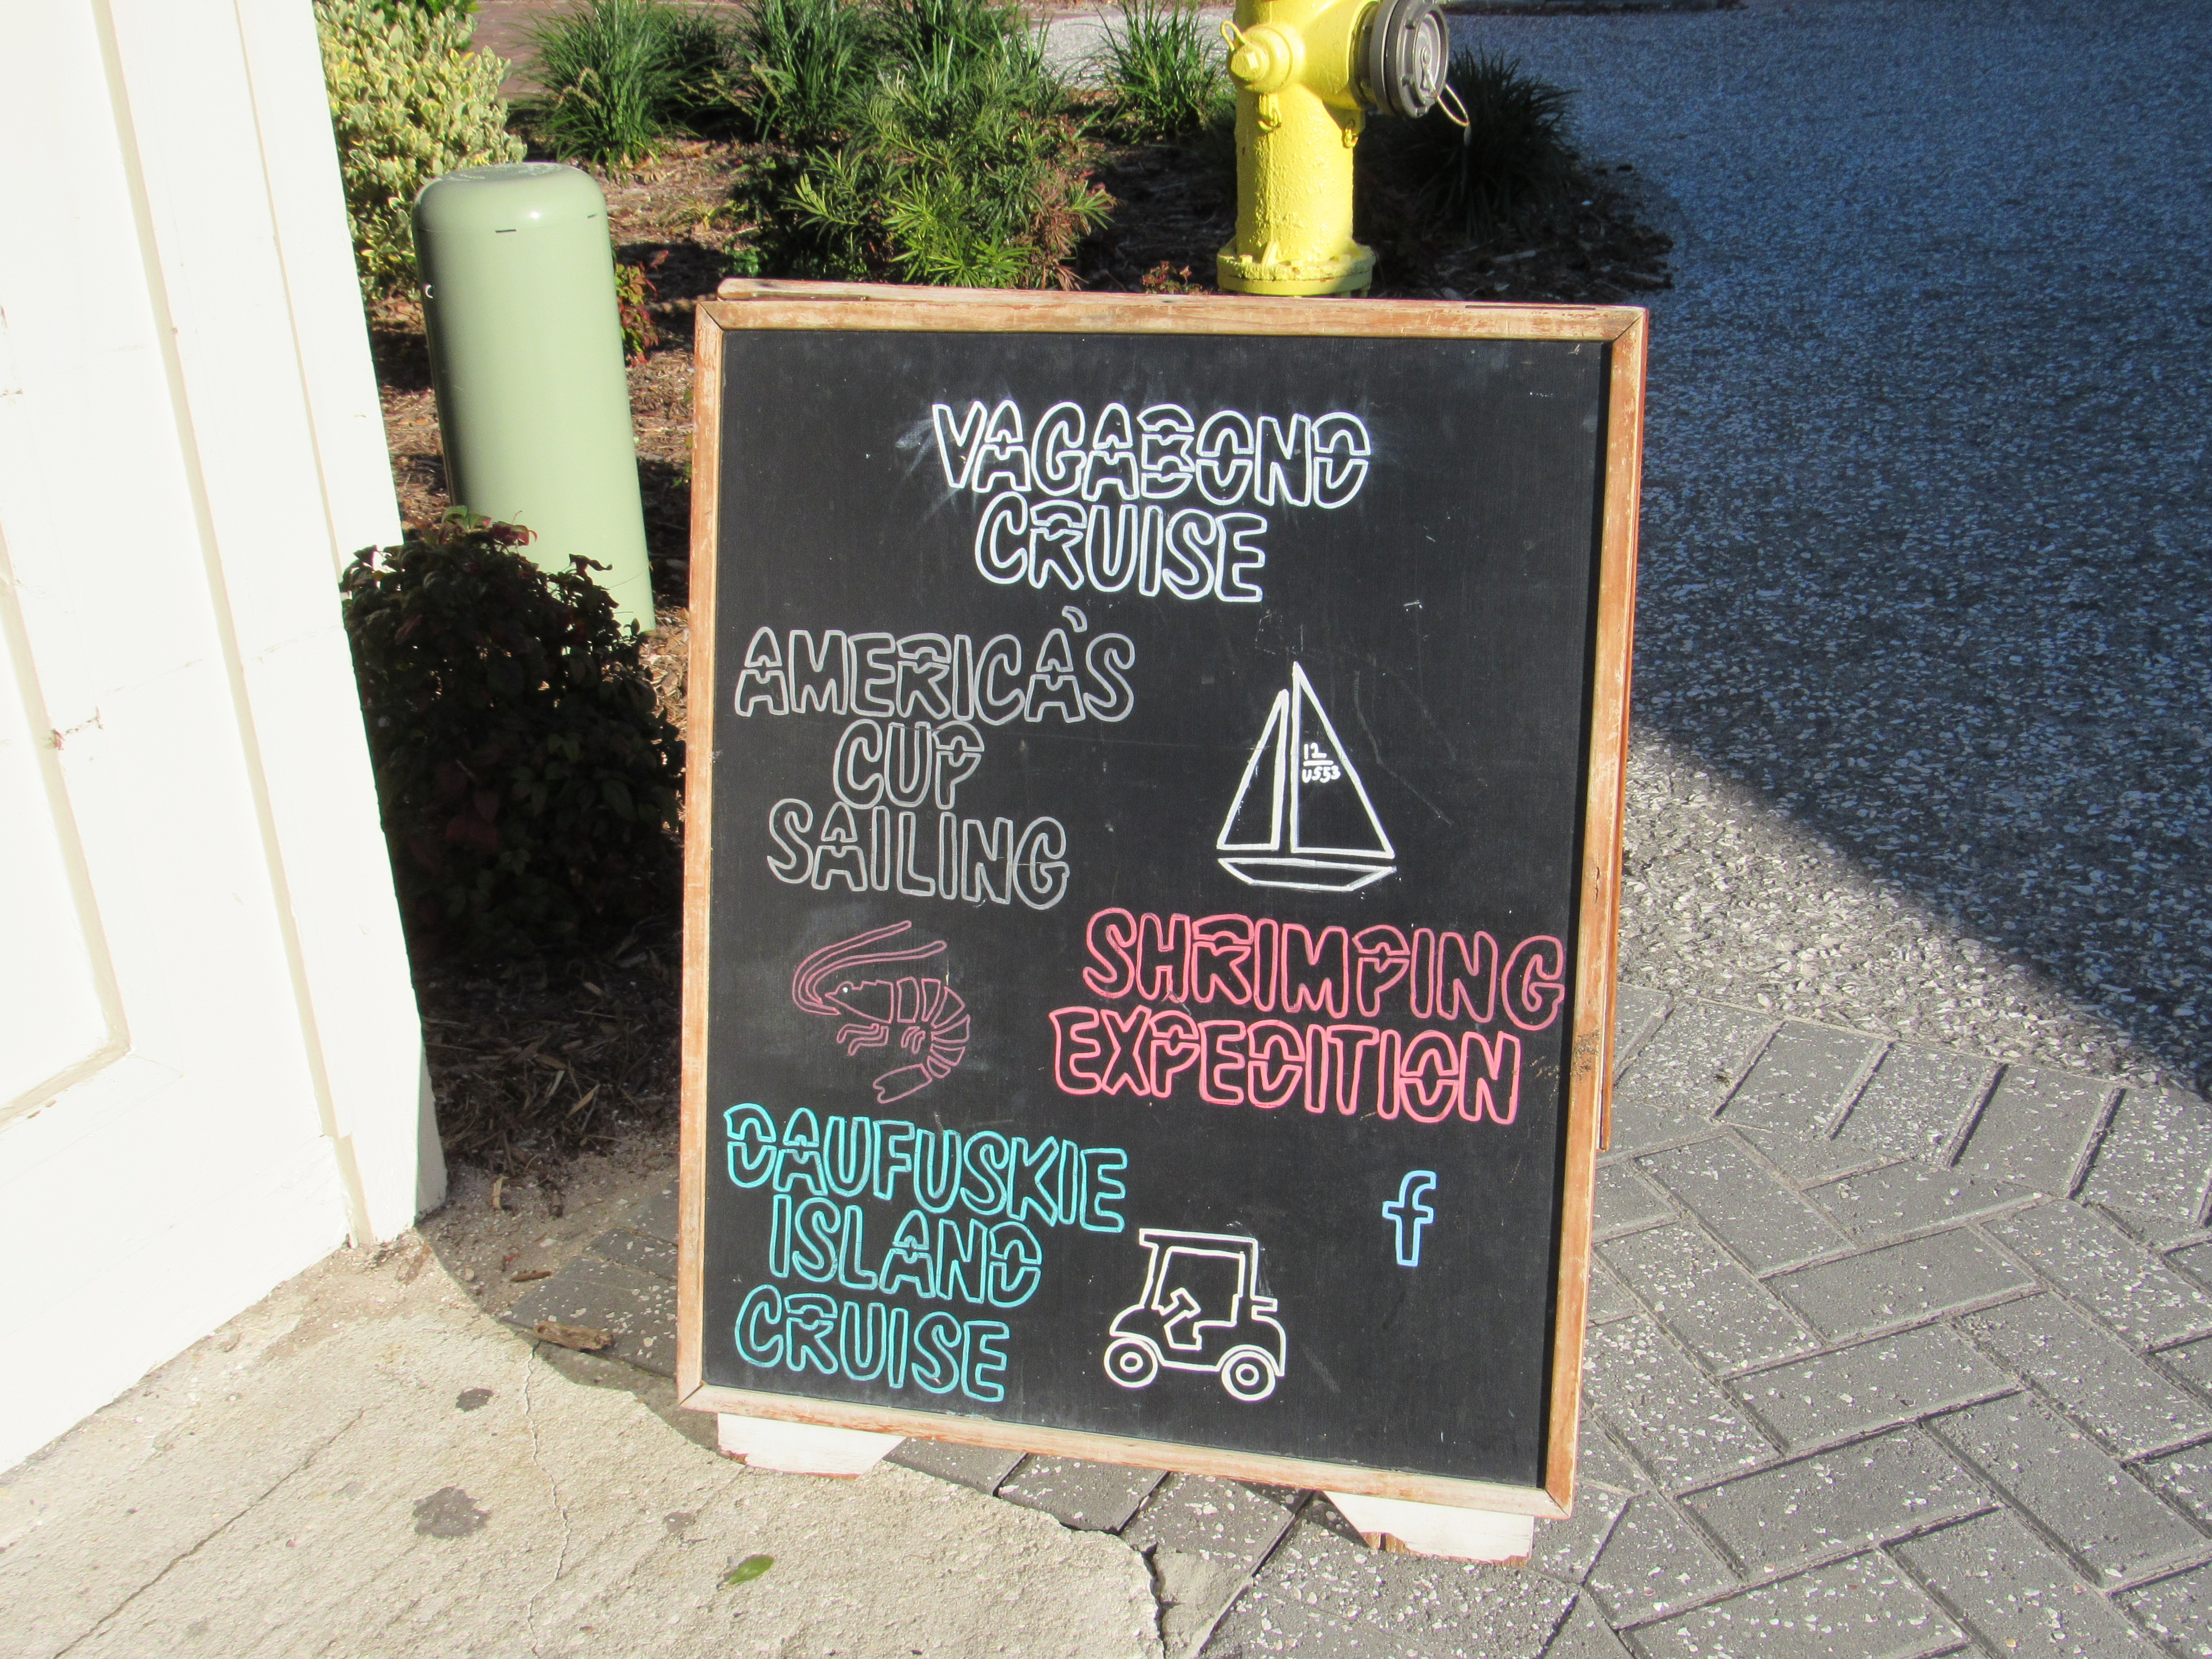 VAGABOND
CRUISE
AMERICA'S
CUP
SAILING
12
US53
SHRIMPING
EXPEDITION
DAUFUSKIE
ISLAND
CRUISE
f